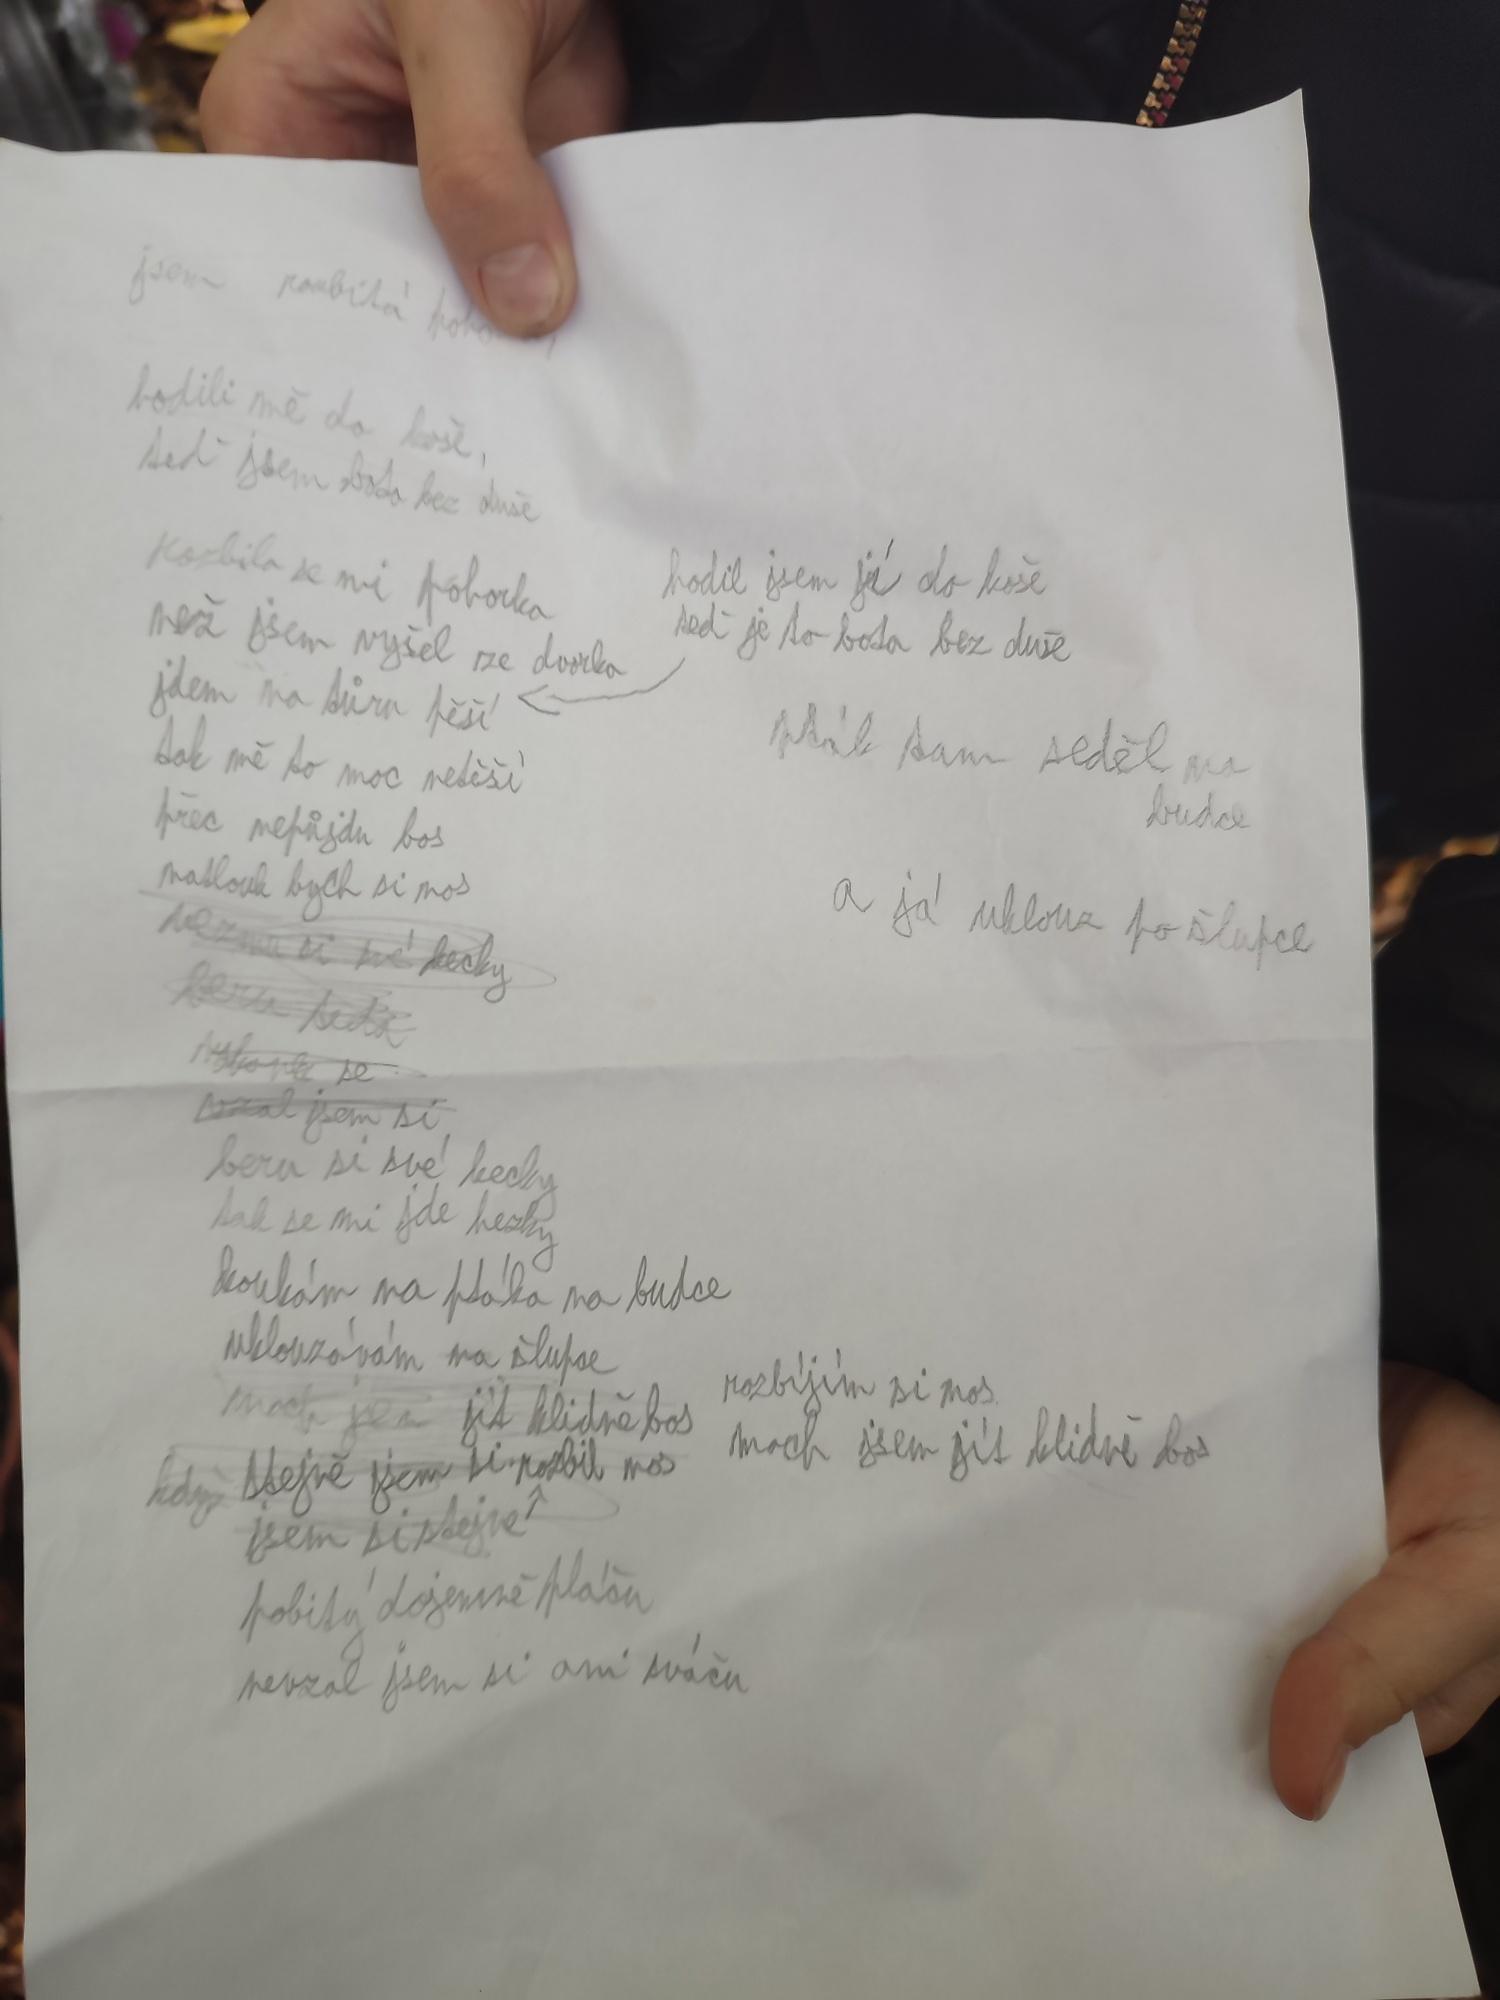 jsem rozbitá
hodili mě do koše,
teď jsem bota bez duše
Rozbila se mi pohorka
než jsem vyšel ze dvorka
hodil jsem jí do koše
teď je to bota bez duše
jdem na túru pěší
tak mě to moc netěší
přec nepůjdu bos
natlouk bych si nos
pták tam seděl na
budce
a já uklouz po šlupce
vezmu si své kecky
beru
se
vzal jsem si
beru si své kecky
tak se mi jde hezky
koukám na ptáka na budce
uklouzávám na šlupce
rozbíjím si nos
moch jsem jít klidně bos
moch jsem jít klidně bos
když stejně jsem si rozbil nos
jsem si stejně
pobitý dojemně pláču
nevzal jsem si ani sváču